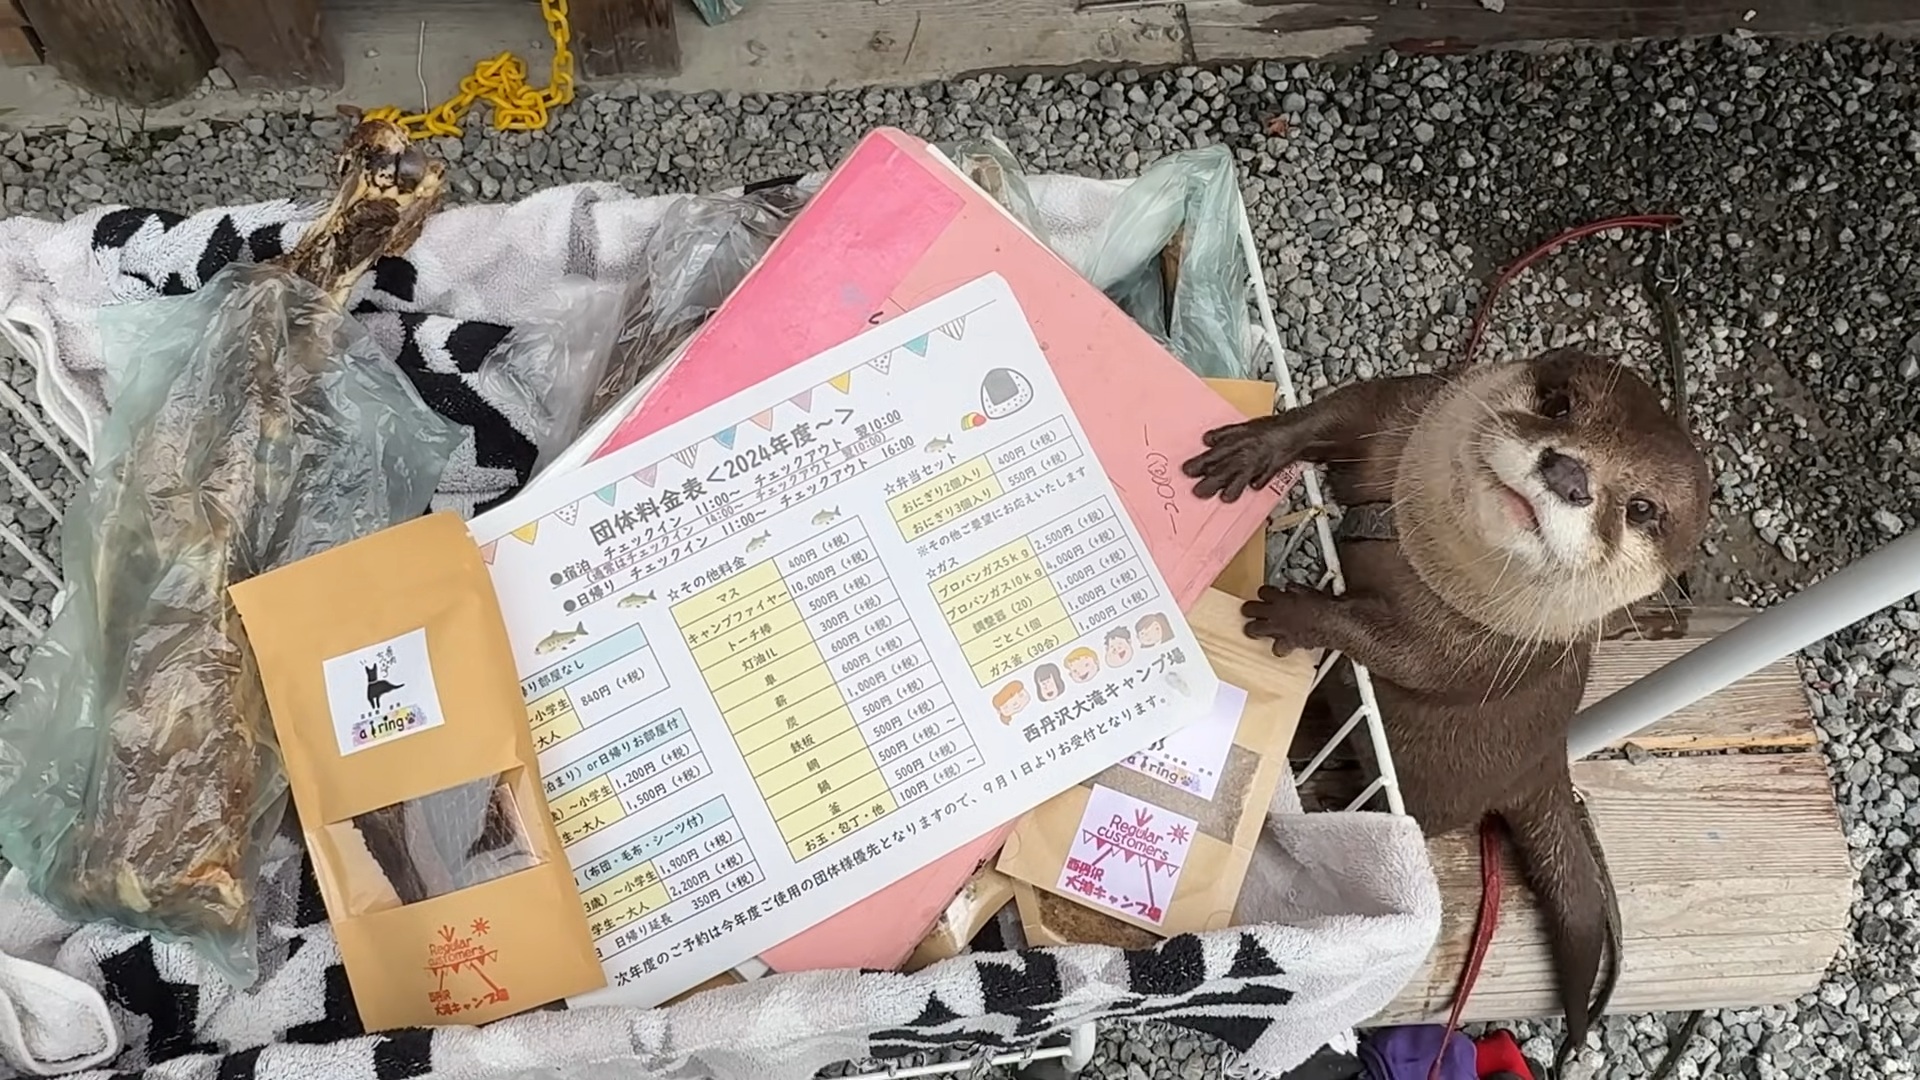 団体料金表<2024年度~>
●宿泊 チェックイン 11:00~ チェックアウト 翌10:00
(通常はチェックイン 14:00~ チェックアウト 翌10:00)
●日帰り チェックイン 11:00~ チェックアウト 16:00
り部屋なし
~小学生 840円(+税)
~大人
泊まり)or日帰りお部屋付
)~小学生 1,200円(+税)
生~大人 1,500円(+税)
(布団・毛布・シーツ付)
3歳)~小学生 1,900円(+税)
学生~大人 2,200円(+税)
日帰り延長 350円(+税)
☆その他料金
マス 400円(+税)
キャンプファイヤー 10,000円(+税)
トーチ棒 500円(+税)
灯油1L 300円(+税)
車 600円(+税)
薪 600円(+税)
炭 1,000円(+税)
鉄板 500円(+税)
網 500円(+税)
鍋 500円(+税)~
釜 500円(+税)
お玉・包丁・他 100円(+税)~
☆弁当セット
おにぎり2個入り 400円(+税)
おにぎり3個入り 550円(+税)
※その他ご要望にお応えいたします
☆ガス
プロパンガス5kg 2,500円(+税)
プロパンガス10kg 4,000円(+税)
調整器(20) 1,000円(+税)
ごとく1個 1,000円(+税)
ガス釜(30合) 1,000円(+税)
西丹沢大滝キャンプ場
次年度のご予約は今年度ご使用の団体様優先となりますので、9月1日よりお受付となります。
airing
Regular
customers
西丹沢
大滝キャンプ場
airing
Regular
customers
西丹沢
大滝キャンプ場